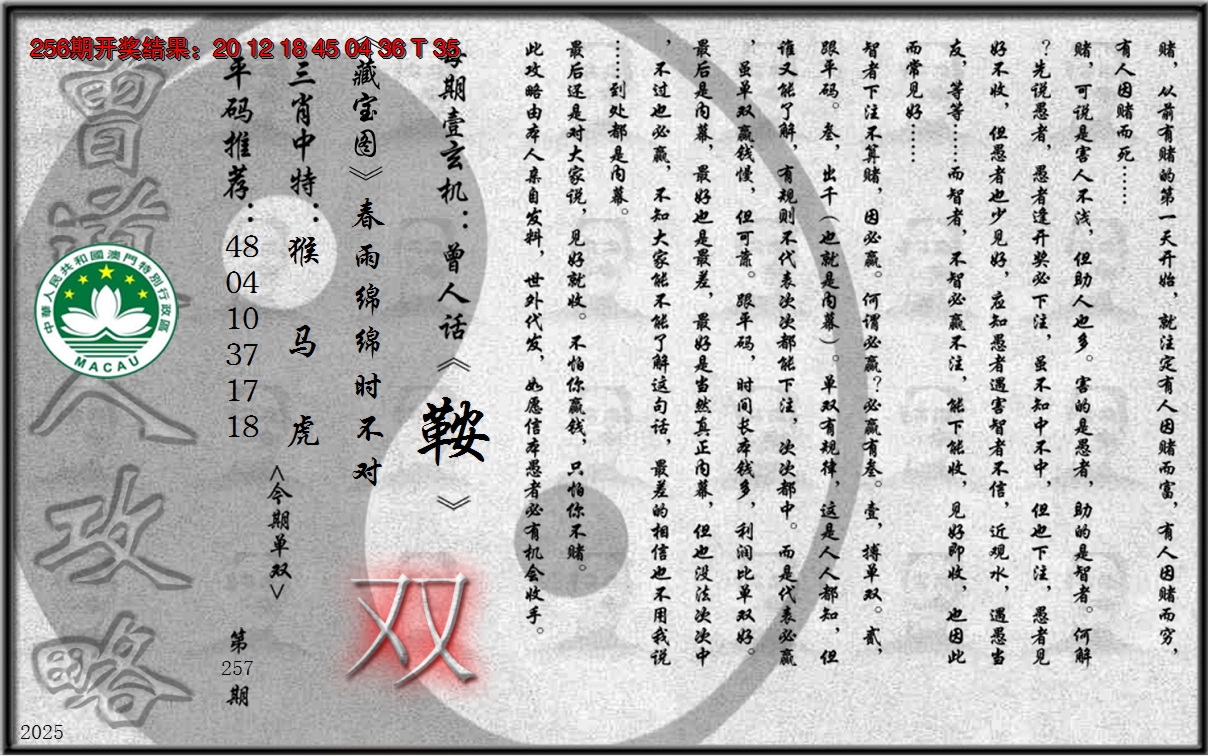 256期开奖结果：20 12 18 45 04 36 T 35
赌，从前有赌的第一天开始，就注定有人因赌而富，有人因赌而穷，
有人因赌而死……
赌，可说是害人不浅，但助人也多。害的是愚者，助的是智者。何解
？先说愚者，愚者逢开奖必下注，虽不知中不中，但也下注，愚者见
好不收，但愚者也少见好，应知愚者遇害智者不信，近观水，遇愚当
友，等等……而智者，不智必赢不注，能下能收，见好即收，也因此
而常见好……
智者下注不算赌，因必赢。何谓必赢？必赢有叁。壹，搏单双。贰，
跟平码。叁，出千（也就是内幕）。单双有规律，这是人人都知，但
谁又能了解，有规则不代表次次都能下注，次次都中。而是代表必赢
，虽单双赢钱慢，但可靠。跟平码，时间长本钱多，利润比单双好。
最后是内幕，最好也是最差，最好是当然真正内幕，但也没法次次中
，不过也必赢，不知大家能不能了解这句话，最差的相信也不用我说
……到处都是内幕。
最后还是对大家说，见好就收。不怕你赢钱，只怕你不赌。
此攻略由本人亲自发料，世外代发，如愿信本愚者必有机会收手。
每期壹玄机：曾人话《鞍》
《藏宝图》春雨绵绵时不对
双
三肖中特：猴 马 虎
<今期单双>
平码推荐：48 04 10 37 17 18
第257期
曾道人攻略
中華人民共和國澳門特別行政區
MACAU
2025